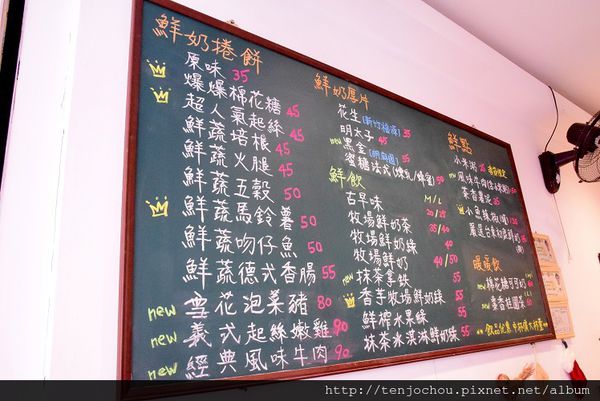 鮮奶捲餅
原味 35
爆爆棉花糖 45
超人氣起絲 45
鮮蔬培根 45
鮮蔬火腿 45
鮮蔬五穀 50
鮮蔬馬鈴薯 50
鮮蔬吻仔魚 50
鮮蔬德式香腸 55
new 雪花泡菜豬 80
new 義式起絲嫩雞 90
new 經典風味牛肉 90
鮮奶厚片
花生(新竹福源) 35
明太子 45
new 黑金
蜜糖法式
鮮飲 M/L
古早味
牧場鮮奶茶 35/40
牧場鮮奶綠 40
牧場鮮奶 40/50
new 抹茶拿鐵 55
香芋牧場鮮奶綠 55
new 鮮榨水果綠 55
抹茶冰淇淋鮮奶綠 55
鮮點
小米粥
new
暖暖飲
new 棉花糖可可奶
new
http://tenjochou.pixnet.net/album